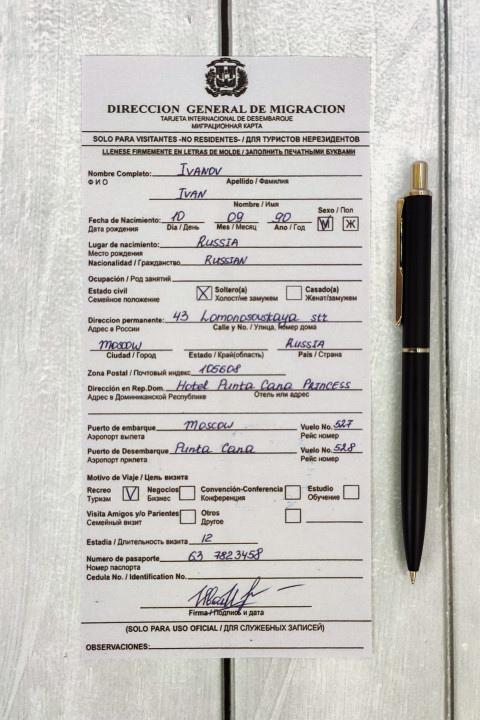 DIRECCION GENERAL DE MIGRACION
TARJETA INTERNACIONAL DE DESEMBARQUE
МИГРАЦИОННАЯ КАРТА
SOLO PARA VISITANTES -NO RESIDENTES- / ДЛЯ ТУРИСТОВ НЕРЕЗИДЕНТОВ
LLENESE FIRMEMENTE EN LETRAS DE MOLDE / ЗАПОЛНИТЬ ПЕЧАТНЫМИ БУКВАМИ
Nombre Completo: IVANOV
Ф И О Apellido / Фамилия
IVAN
Nombre / Имя
Fecha de Nacimiento: 10 09 90 Sexo / Пол
Дата рождения Dia / День Mes / Месяц Ano / Год M Ж
Lugar de nacimiento: RUSSIA
Место рождения
Nacionalidad / Гражданство RUSSIAN
Ocupación / Род занятий
Estado civil X Soltero(a) Casado(a)
Семейное положение Холост/не замужем Женат/замужем
Direccion permanente: 43 Lomonosovskaya str
Адрес в России Calle y No. / Улица, номер дома
MOSCOW RUSSIA
Ciudad / Город Estado / Край(область) Pais / Страна
Zona Postal / Почтовый индекс 105608
Dirección en Rep.Dom. Hotel Punta Cana PRINCESS
Адрес в Доминиканской Республике Отель или адрес
Puerto de embarque MOSCOW Vuelo No. 527
Аэропорт вылета Рейс номер
Puerto de Desembarque Punta Cana Vuelo No. 528
Аэропорт прилета Рейс номер
Motivo de Viaje / Цель визита
Recreo V Negocios Convención-Conferencia Estudio
Туризм Бизнес Конференция Обучение
Visita Amigos y/o Parientes Otros
Семейный визит Другое
Estadia / Длительность визита 12
Numero de pasaporte 63 7823458
Номер паспорта
Cedula No. / Identification No.
Firma / Подпись и дата
(SOLO PARA USO OFICIAL / ДЛЯ СЛУЖЕБНЫХ ЗАПИСЕЙ)
OBSERVACIONES: